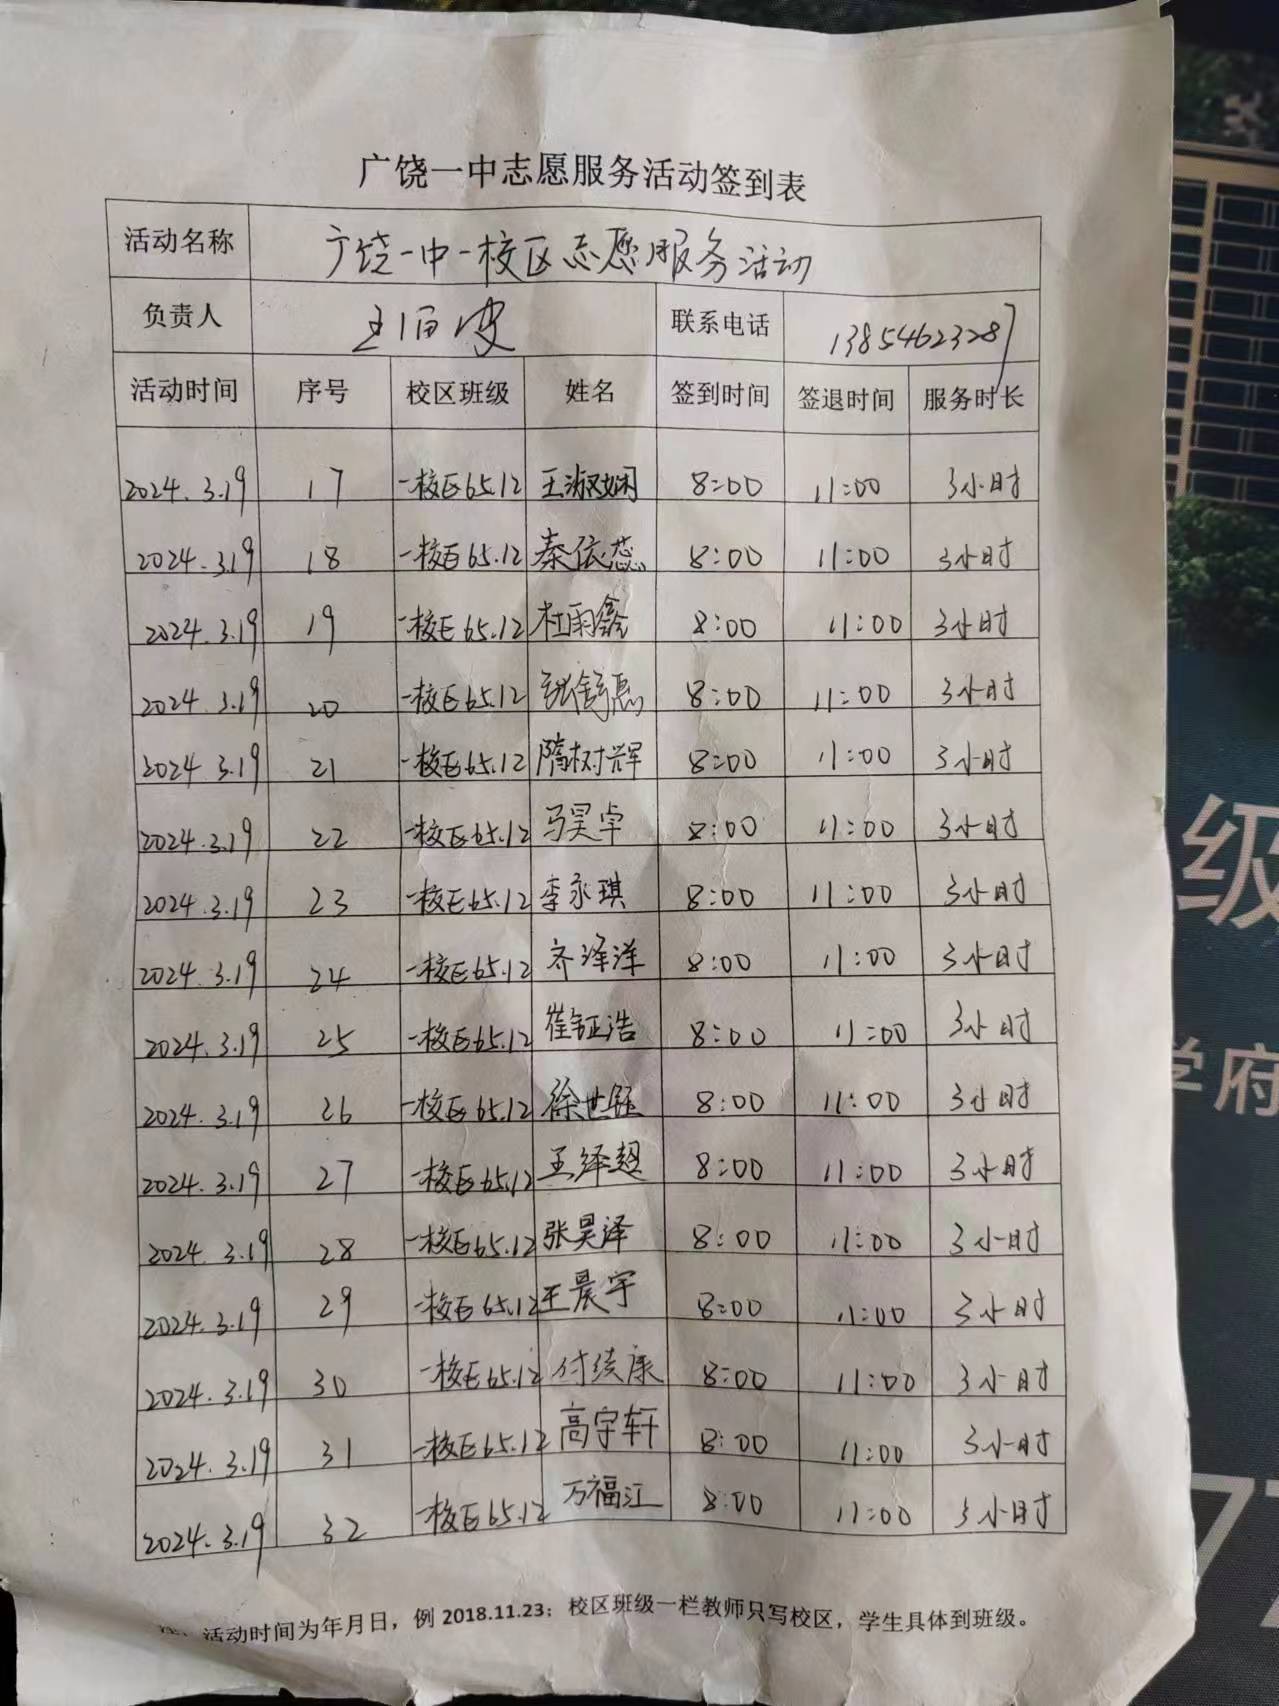 广饶一中志愿服务活动签到表
活动名称 广饶一中一校区志愿服务活动
负责人 联系电话 13854623287
活动时间 序号 校区班级 姓名 签到时间 签退时间 服务时长
2024.3.19 17 一校区65.12 王淑娴 8:00 11:00 3小时
2024.3.19 18 一校区65.12 秦依蕊 8:00 11:00 3小时
2024.3.19 19 一校区65.12 杜雨鑫 8:00 11:00 3小时
2024.3.19 20 一校区65.12 8:00 11:00 3小时
2024.3.19 21 一校区65.12 隋树辉 8:00 11:00 3小时
2024.3.19 22 一校区65.12 马昊卓 8:00 11:00 3小时
2024.3.19 23 一校区65.12 李永琪 8:00 11:00 3小时
2024.3.19 24 一校区65.12 齐泽洋 8:00 11:00 3小时
2024.3.19 25 一校区65.12 崔钲浩 8:00 11:00 3小时
2024.3.19 26 一校区65.12 徐世钰 8:00 11:00 3小时
2024.3.19 27 一校区65.12 王绎超 8:00 11:00 3小时
2024.3.19 28 一校区65.12 张昊泽 8:00 11:00 3小时
2024.3.19 29 一校区65.12 王晨宇 8:00 11:00 3小时
2024.3.19 30 一校区65.12 付续康 8:00 11:00 3小时
2024.3.19 31 一校区65.12 高宇轩 8:00 11:00 3小时
2024.3.19 32 一校区65.12 万福江 8:00 11:00 3小时
注：活动时间为年月日，例 2018.11.23；校区班级一栏教师只写校区，学生具体到班级。
级
学府
77